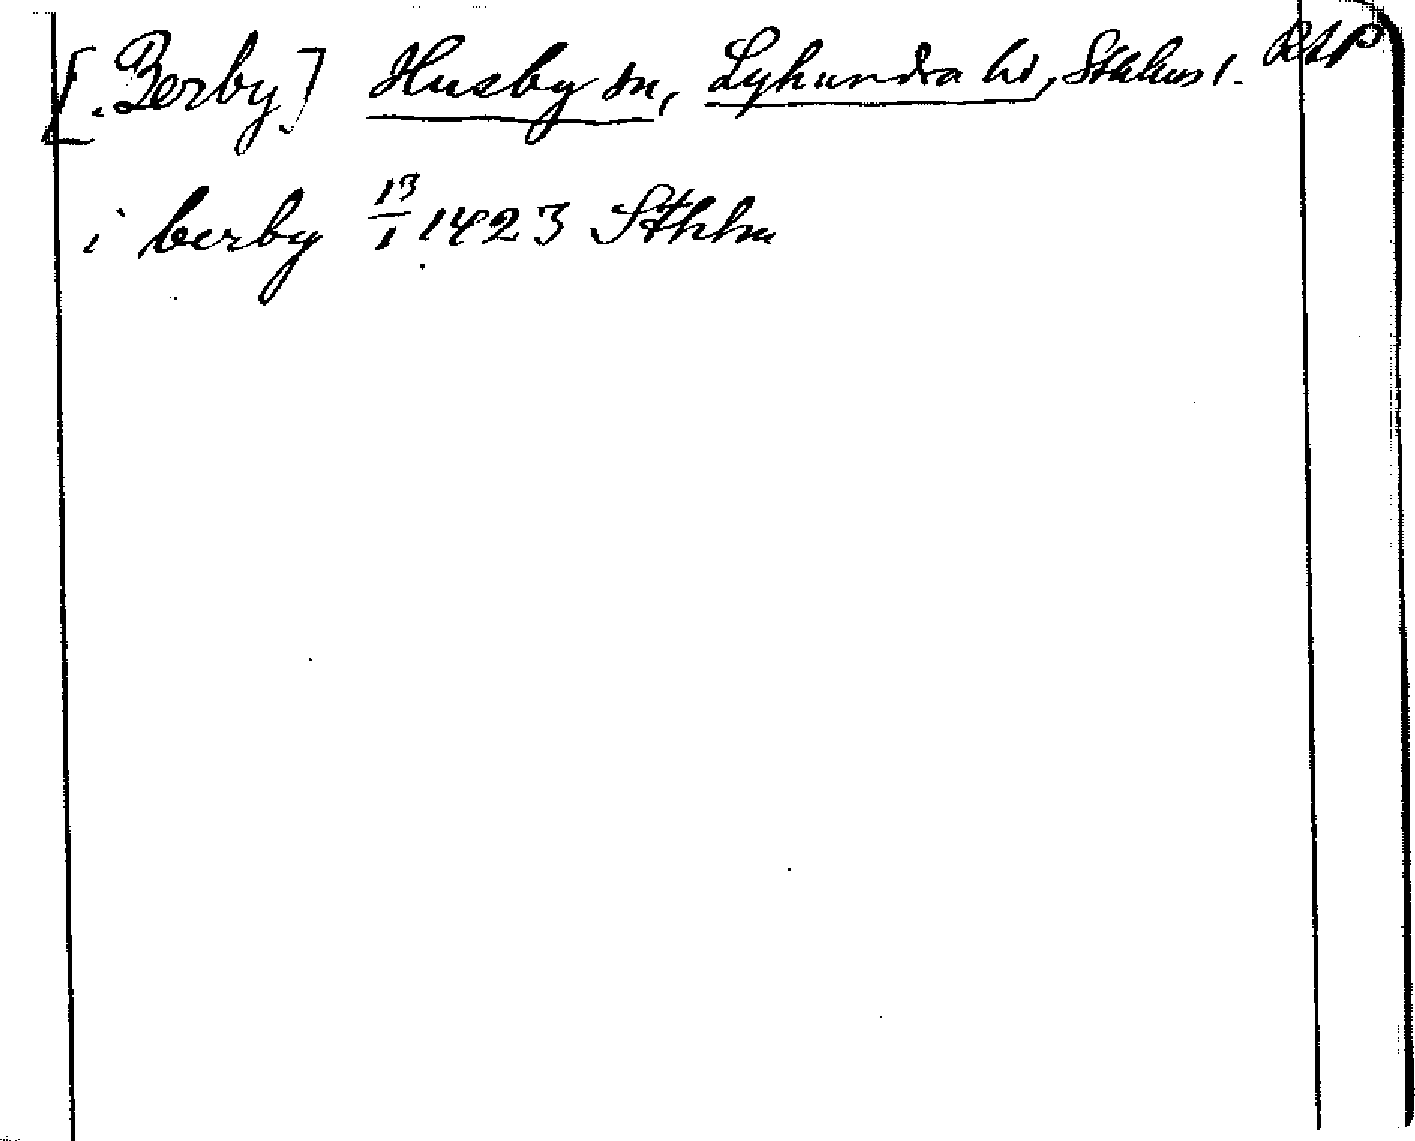 [.Berby.] Husby sn, Lyhundra hd, Sthlms l. RAP
i berby 13/1 1423 Sthlm